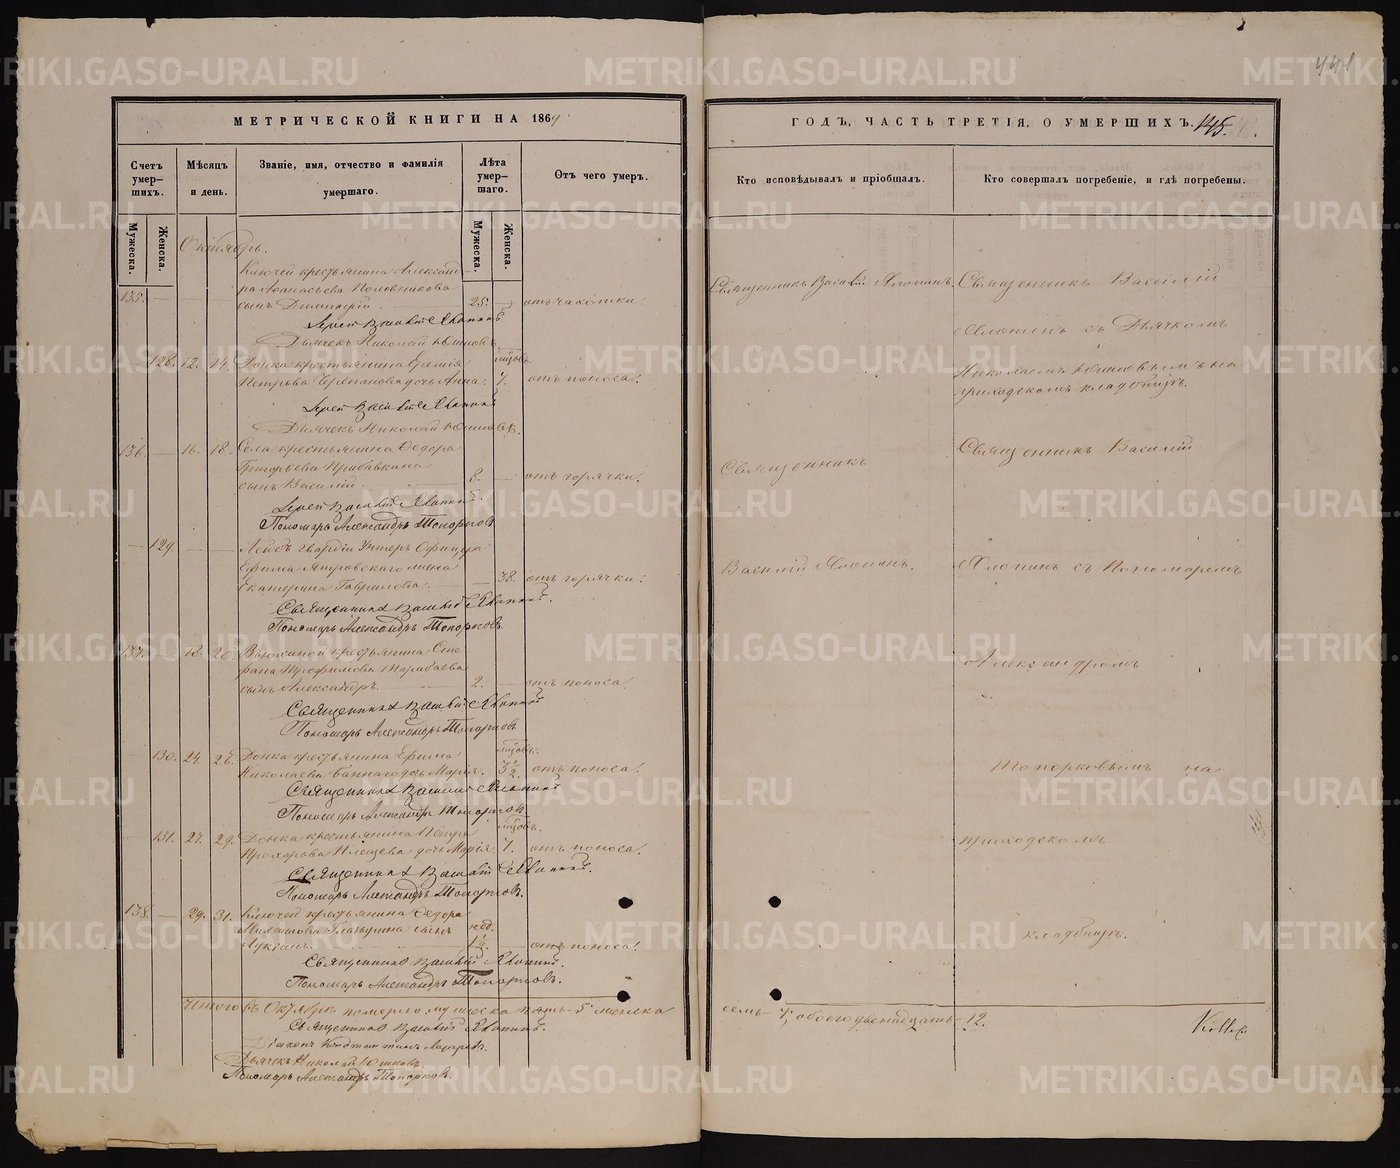 441
МЕТРИЧЕСКОЙ КНИГИ НА 1869
ГОДЪ, ЧАСТЬ ТРЕТІЯ, О УМЕРШИХЪ. 145.
Счетъ умер-шихъ.
Мѣсяцъ и день.
Званіе, имя, отчество и фамилія умершаго.
Лѣта умер-шаго.
Отъ чего умеръ.
Кто исповѣдывалъ и пріобщалъ.
Кто совершалъ погребеніе, и гдѣ погребены.
Мужеска.
Женска.
Мужеска.
Женска.
Октябрь.
Ключей крестьянина Александ-
ра Аѳанасьева Половникова
135. — сынъ Димитрій. 25. — отъ чахотки.
Іерей Василій Хлопинъ
Дьячекъ Николай Юшковъ
мѣсяцовъ.
128. 12. 14. крестьянина Еремія
Петрова дочь Анна. 7. отъ поноса.
Іерей Василій Хлопинъ
Дьячекъ Николай Юшковъ.
136. — 16. 18. Села крестьянина Ѳедора
Григорьева Прибавкина
сынъ Василій. 8. — отъ горячки.
Іерей Василій Хлопинъ.
Пономарь Александръ Топорковъ.
— 129. — — Лейбъ гвардіи Унтеръ Офицера
Ефима жена
Екатерина Гаврилова. — 38. отъ горячки.
Священникъ Василій Хлопинъ.
Пономарь Александръ Топорковъ.
137. — 18. 20. крестьянина Сте-
фана Трофимова Тарабаева
сынъ Александръ. 2. — отъ поноса.
Священникъ Василій Хлопинъ
Пономарь Александръ Топорковъ
мѣсяцовъ.
130. 24. 26. Донка крестьянина Ефима
Николаева дочь Марія. 3 1/2. отъ поноса.
Священникъ Василій Хлопинъ
Пономарь Александръ Топорковъ.
мѣсяцовъ.
131. 27. 29. Донка крестьянина Петра
Прохорова Плещева дочь Марія. 7. отъ поноса.
Священникъ Василій Хлопинъ.
Пономарь Александръ Топорковъ.
138. — 29. 31. Ключей крестьянина Ѳедора
Глазырина сынъ нед.
Лукіанъ. 1 1/2. — отъ поноса.
Священникъ Василій Хлопинъ.
Пономарь Александръ Топорковъ.
Итого въ Октябрѣ померло мужеска пять–5 женска
Священникъ Василій Хлопинъ.
Діаконъ Константинъ
Дьячекъ Николай Юшковъ.
Пономарь Александръ Топорковъ.
Священникъ Василій Хлопинъ.
Священникъ
Василій Хлопинъ.
Священникъ Василій
Хлопинъ съ Дьячкомъ
Николаемъ Юшковымъ на
приходскомъ кладбищѣ.
Священникъ Василій
Хлопинъ съ Пономаремъ
Александромъ
Топорковымъ на
приходскомъ
кладбищѣ.
семь–7; обоего двенадцать–12.
METRIKI.GASO-URAL.RU